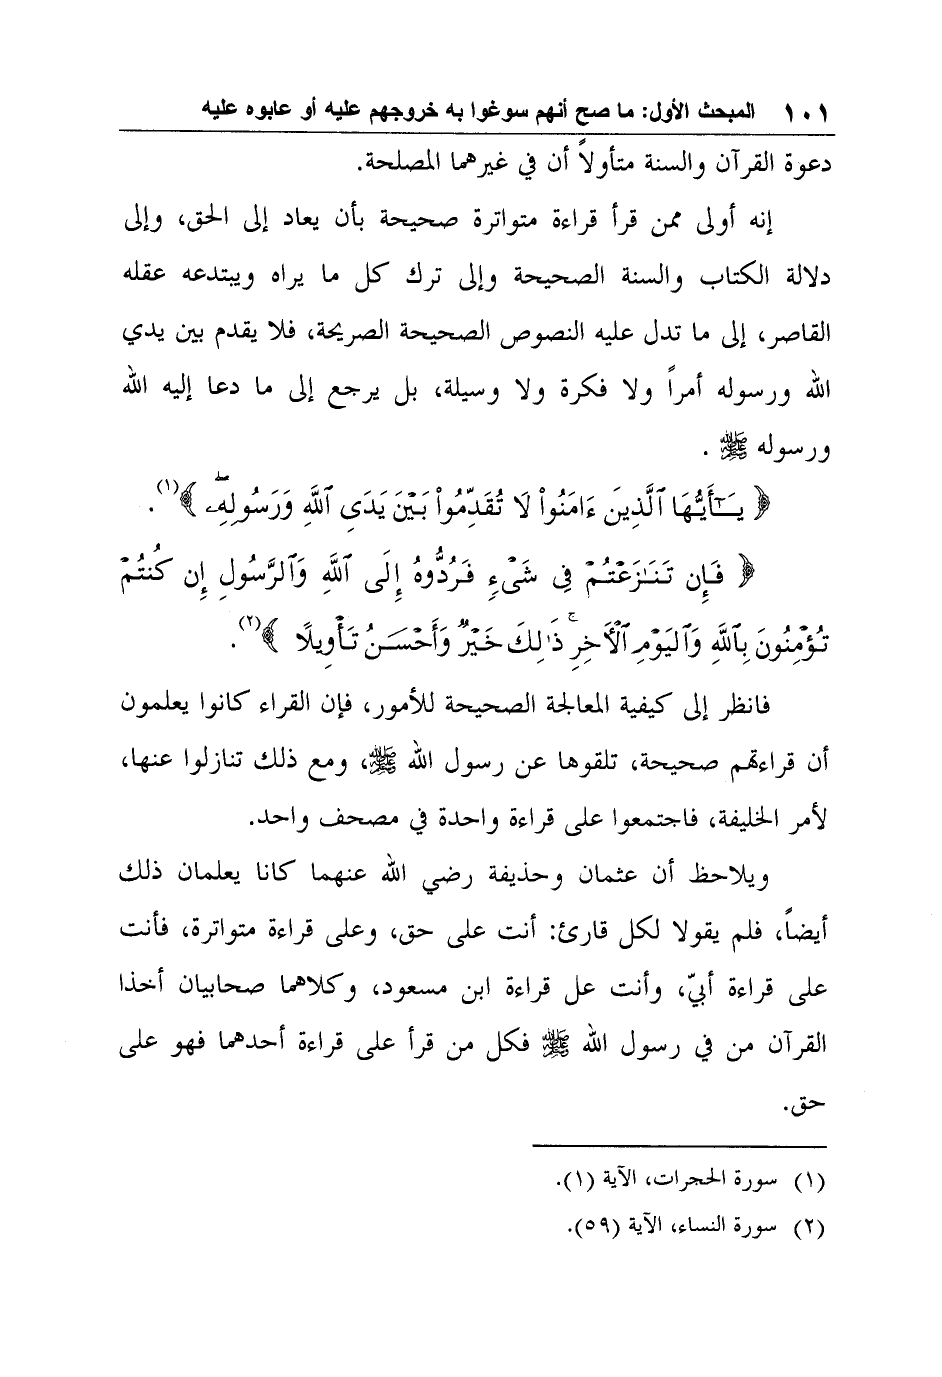 ١٠١ المبحث الأول: ما صح أنهم سوغوا به خروجهم عليه أو عابوه عليه
دعوة القرآن والسنة متأولاً أن في غيرهما المصلحة.
إنه أولى ممن قرأ قراءة متواترة صحيحة بأن يعاد إلى الحق، وإلى
دلالة الكتاب والسنة الصحيحة وإلى ترك كل ما يراه ويبتدعه عقله
القاصر، إلى ما تدل عليه النصوص الصحيحة الصريحة، فلا يقدم بين يدي
الله ورسوله أمراً ولا فكرة ولا وسيلة، بل يرجع إلى ما دعا إليه الله
ورسوله ﷺ .
﴿ يَـٰٓأَيُّهَا ٱلَّذِينَ ءَامَنُوا۟ لَا تُقَدِّمُوا۟ بَيْنَ يَدَىِ ٱللَّهِ وَرَسُولِهِۦۖ ﴾(١).
﴿ فَإِن تَنَـٰزَعْتُمْ فِى شَىْءٍ فَرُدُّوهُ إِلَى ٱللَّهِ وَٱلرَّسُولِ إِن كُنتُمْ
تُؤْمِنُونَ بِٱللَّهِ وَٱلْيَوْمِ ٱلْأَخِرِۚ ذَٰلِكَ خَيْرٌ وَأَحْسَنُ تَأْوِيلًا ﴾(٢).
فانظر إلى كيفية المعالجة الصحيحة للأمور، فإن القراء كانوا يعلمون
أن قراءتهم صحيحة، تلقوها عن رسول الله ﷺ، ومع ذلك تنازلوا عنها،
لأمر الخليفة، فاجتمعوا على قراءة واحدة في مصحف واحد.
ويلاحظ أن عثمان وحذيفة رضي الله عنهما كانا يعلمان ذلك
أيضاً، فلم يقولا لكل قارئ: أنت على حق، وعلى قراءة متواترة، فأنت
على قراءة أبيّ، وأنت عل قراءة ابن مسعود، وكلاهما صحابيان أخذا
القرآن من في رسول الله ﷺ فكل من قرأ على قراءة أحدهما فهو على
حق.
(١) سورة الحجرات، الآية (١).
(٢) سورة النساء، الآية (٥٩).